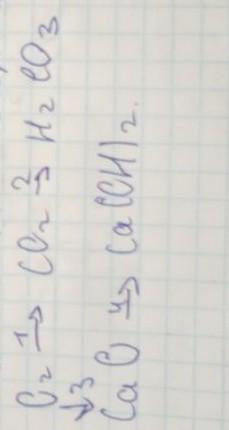 O₂ 1→ CO₂ 2→ H₂CO₃
↓3
CaO 4→ Ca(OH)₂.